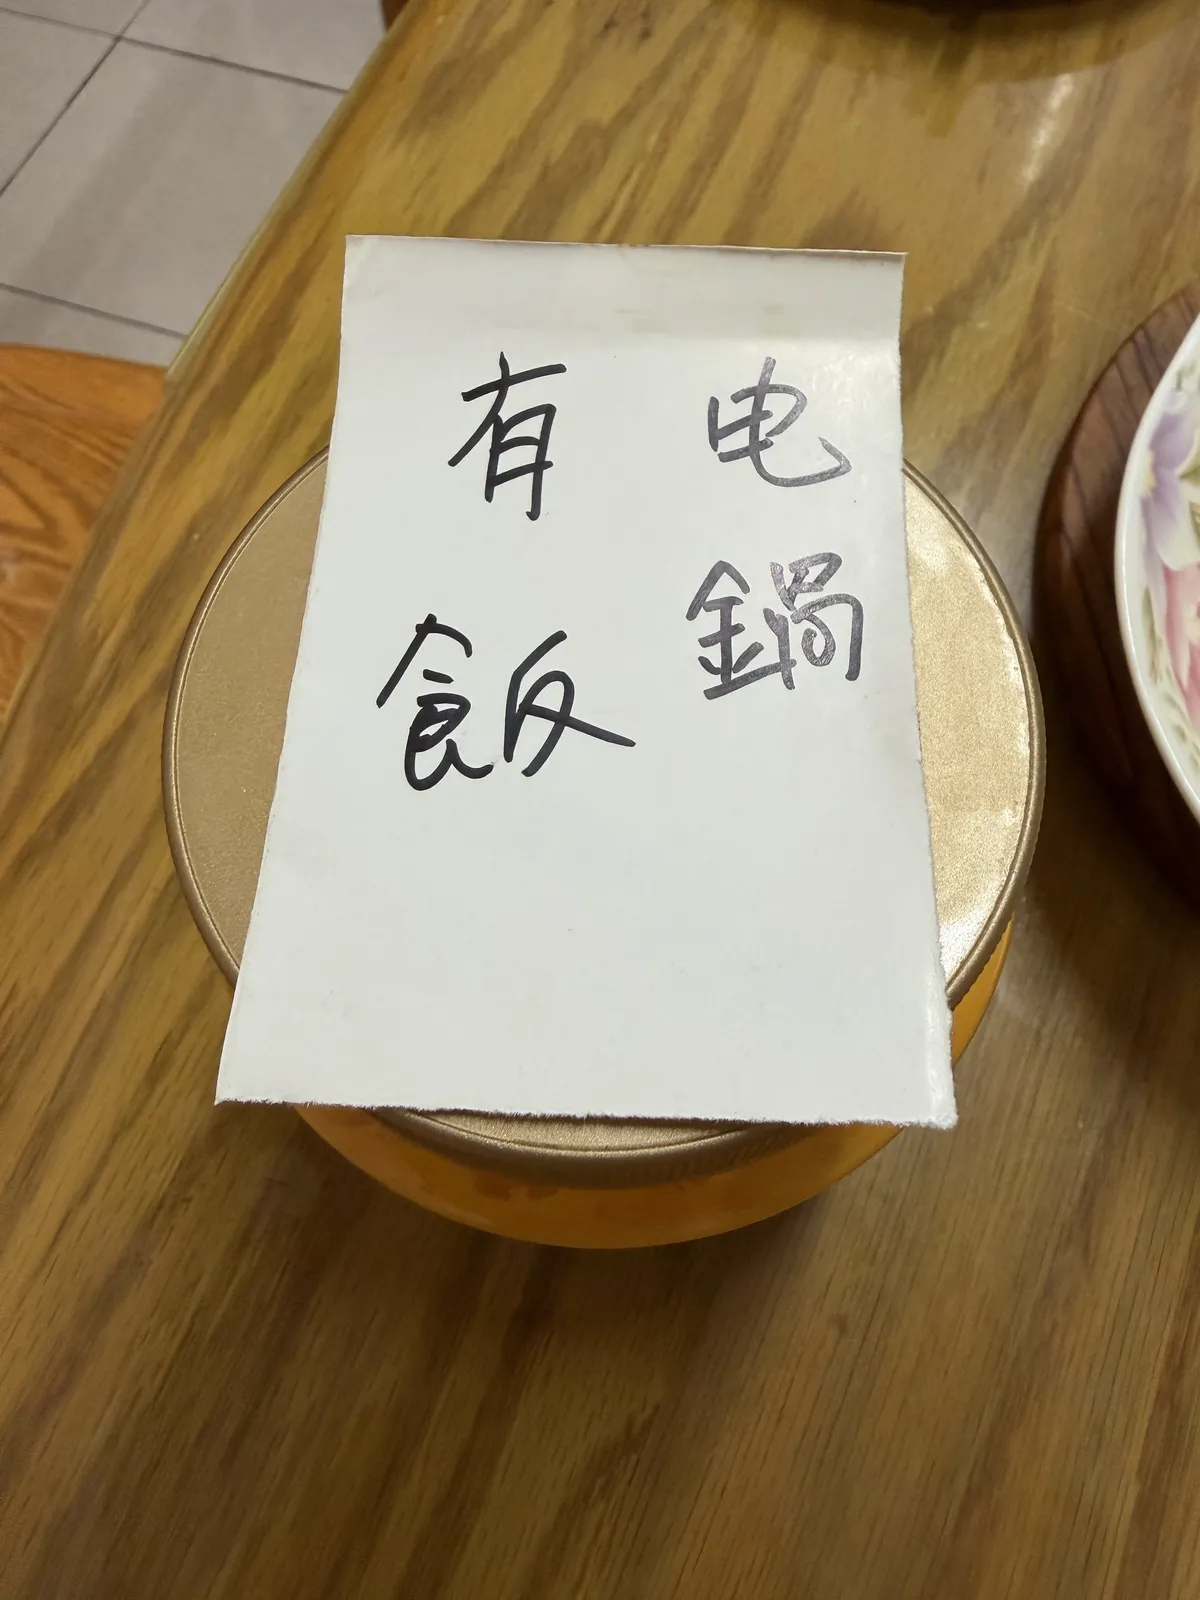 电鍋
有飯